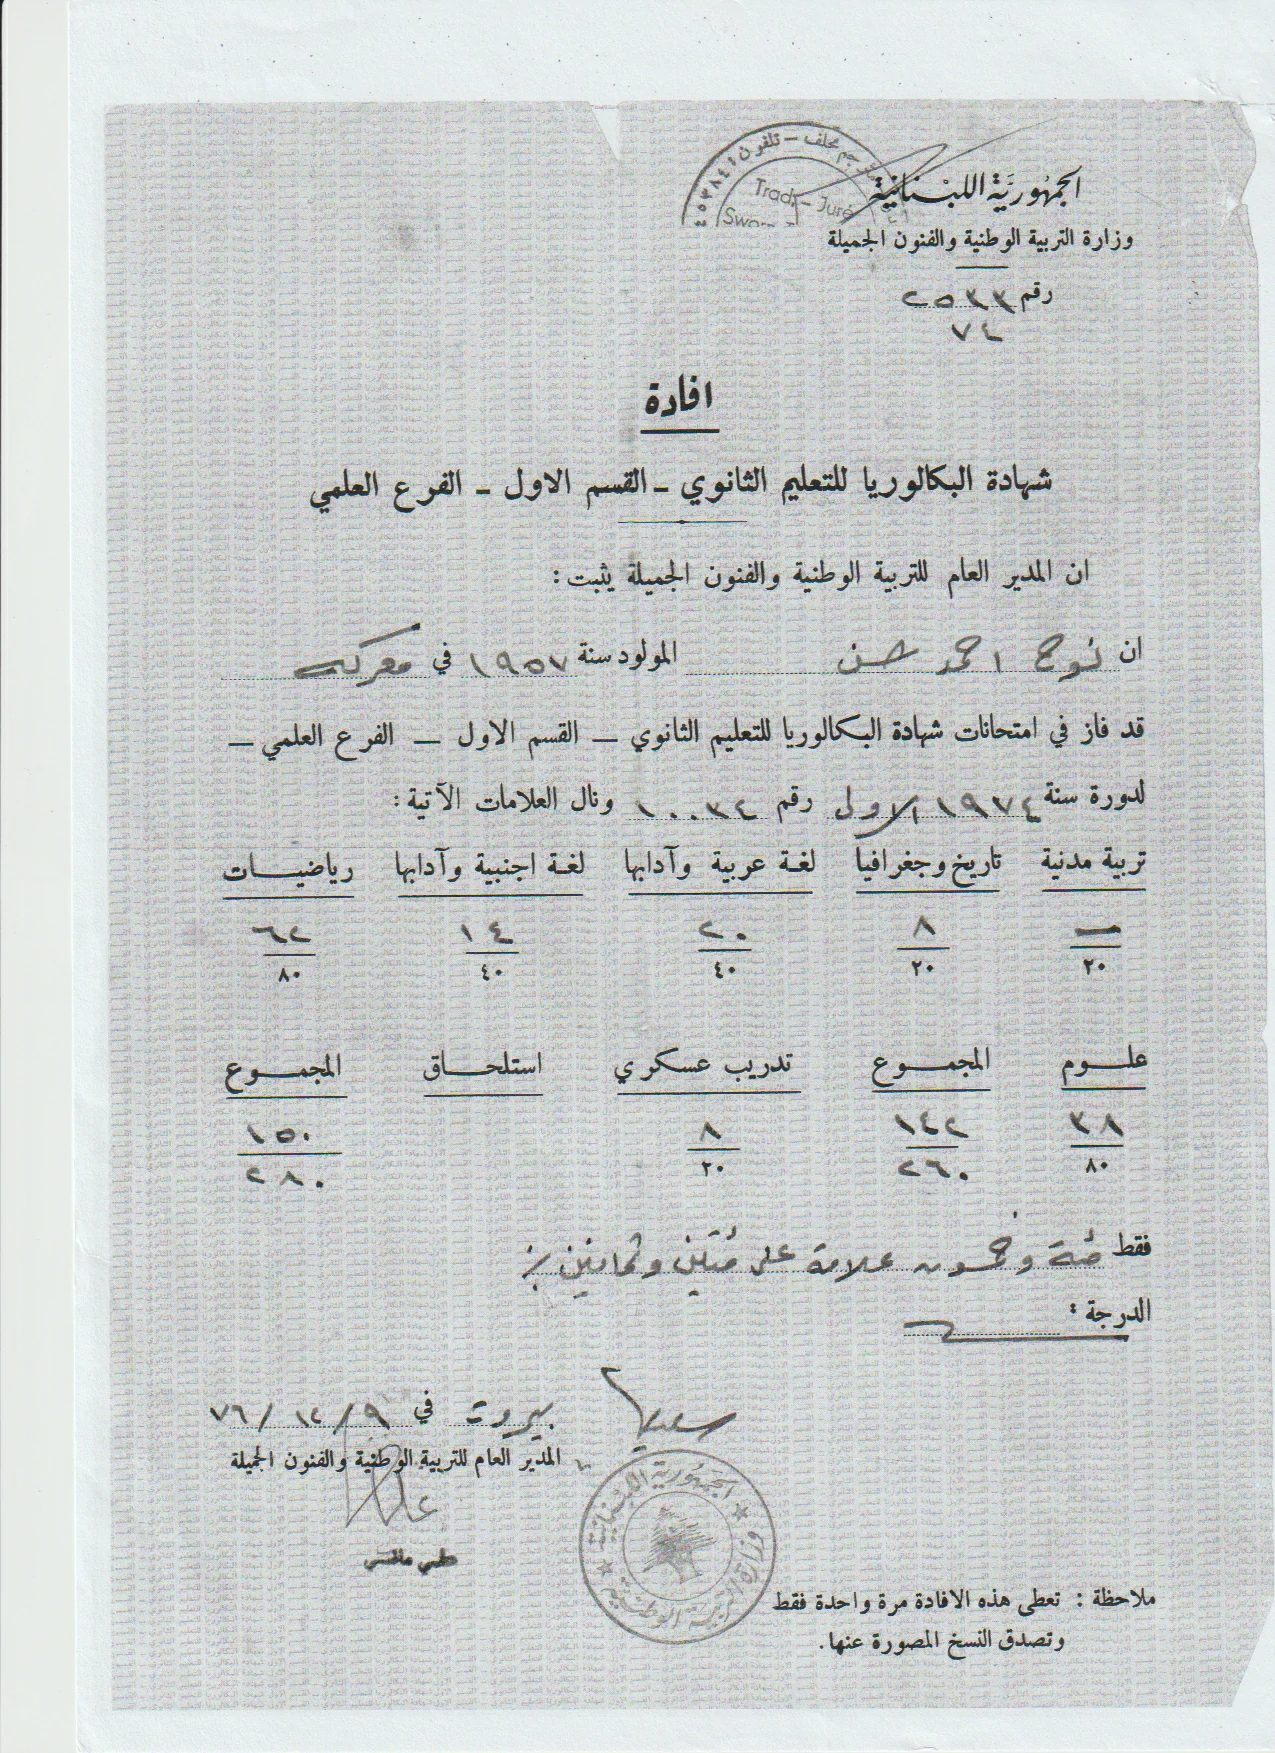 مترجم محلف - تلفون ٤٥٣٨٤١
Trad. - Juré
الجمهورية اللبنانية
وزارة التربية الوطنية والفنون الجميلة
رقم ٢٥٣٣
٧٤
افادة
شهادة البكالوريا للتعليم الثانوي - القسم الاول - الفرع العلمي
ان المدير العام للتربية الوطنية والفنون الجميلة يثبت :
ان نوح احمد حسن المولود سنة ١٩٥٧ في معركه
قد فاز في امتحانات شهادة البكالوريا للتعليم الثانوي — القسم الاول — الفرع العلمي —
لدورة سنة ١٩٧٤ الاولى رقم ١٠٠٣٤ ونال العلامات الآتية :
تربية مدنية تاريخ وجغرافيا لغة عربية وآدابها لغة اجنبية وآدابها رياضيات
— ٨ ٢٠ ١٤ ٦٢
٢٠ ٢٠ ٤٠ ٤٠ ٨٠
علوم المجموع تدريب عسكري استلحاق المجموع
٣٨ ١٤٢ ٨ ١٥٠
٨٠ ٢٦٠ ٢٠ ٢٨٠
فقط مئة وخمسون علامة على مئتين وثمانين
الدرجة :
بيروت في ٩/١٢/٧٦
المدير العام للتربية الوطنية والفنون الجميلة
الجمهورية اللبنانية
وزارة التربية الوطنية
ملاحظة : تعطى هذه الافادة مرة واحدة فقط
وتصدق النسخ المصورة عنها.